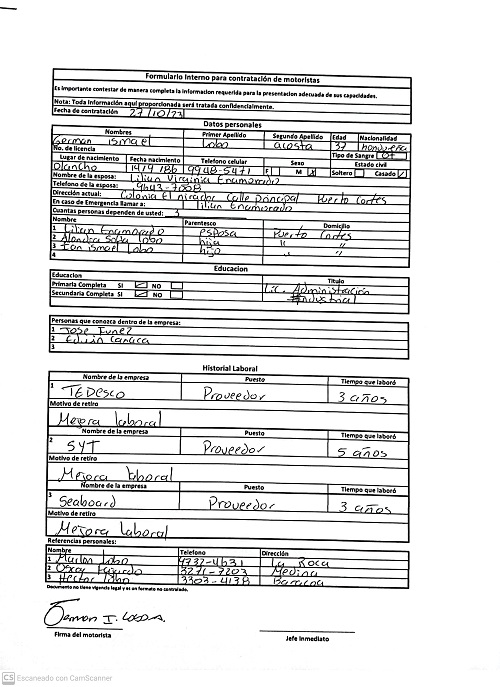 Formulario Interno para contratación de motoristas
Es importante contestar de manera completa la informacion requerida para la presentacion adecuada de sus capacidades.
Nota: Toda Información aquí proporcionada será tratada confidencialmente.
Fecha de contratación 27/10/23
Datos personales
Nombres Primer Apellido Segundo Apellido Edad Nacionalidad
German ismael Lobo acosta 37 hondureña
No. de licencia Tipo de Sangre O+
Lugar de nacimiento Fecha nacimiento Telefono celular Sexo Estado civil
Olancho 14/9/86 9948-5471 F M X Soltero Casado ✓
Nombre de la esposa: Lilian Virginia Enamorado
Telefono de la esposa: 9643-7008
Dirección actual: Colonia El mirador Calle principal Puerto Cortes
En caso de Emergencia llamar a: Lilian Enamorado
Cuantas personas dependen de usted: 3
Nombre Parentesco Domicilio
1 Lilian Enamorado esposa Puerto Cortes
2 Lobo hija " "
3 Ian ismael Lobo hijo " "
4
Educacion
Educacion Titulo
Primaria Completa SI ✓ NO Lic. Administración
Secundaria Completa SI ✓ NO Industrial
Personas que conozca dentro de la empresa:
1 Jose Funez
2 Edwin
3
Historial Laboral
Nombre de la empresa Puesto Tiempo que laboró
1 TEDESCO Proveedor 3 años
Motivo de retiro
Mejora laboral
Nombre de la empresa Puesto Tiempo que laboró
2 SYT Proveedor 5 años
Motivo de retiro
Mejora laboral
Nombre de la empresa Puesto Tiempo que laboró
3 Seaboard Proveedor 3 años
Motivo de retiro
Mejora laboral
Referencias personales:
Nombre Telefono Dirección
1 Marlon Lobo 9732-4631 La Roca
2 Oscar Fajardo 3271-7203 Medina
3 Hector Lobo 3303-4138 Baracoa
Documento no tiene vigencia legal y es un formato no controlado.
German I. Lobo A.
Firma del motorista Jefe Inmediato
CS Escaneado con CamScanner